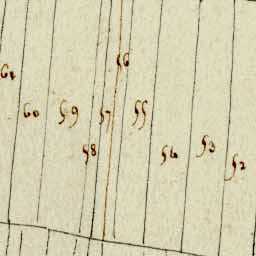 56
61
60 59 57 55
58 54 53 52